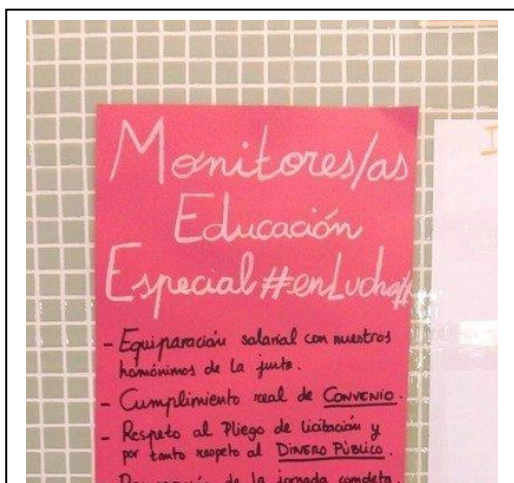 Monitores/as
Educación
Especial #enLucha#
- Equiparación salarial con nuestros
homónimos de la junta.
- Cumplimiento real de CONVENIO.
- Respeto al Pliego de licitación y
por tanto respeto al DINERO PÚBLICO.
de la jornada completa.